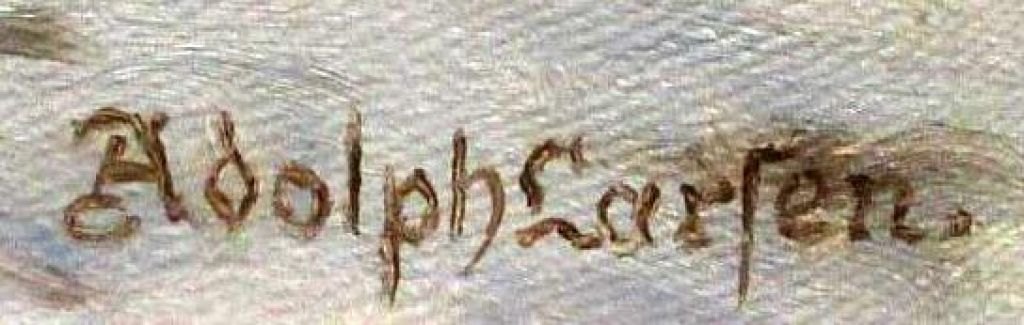 Adolph Larſen.